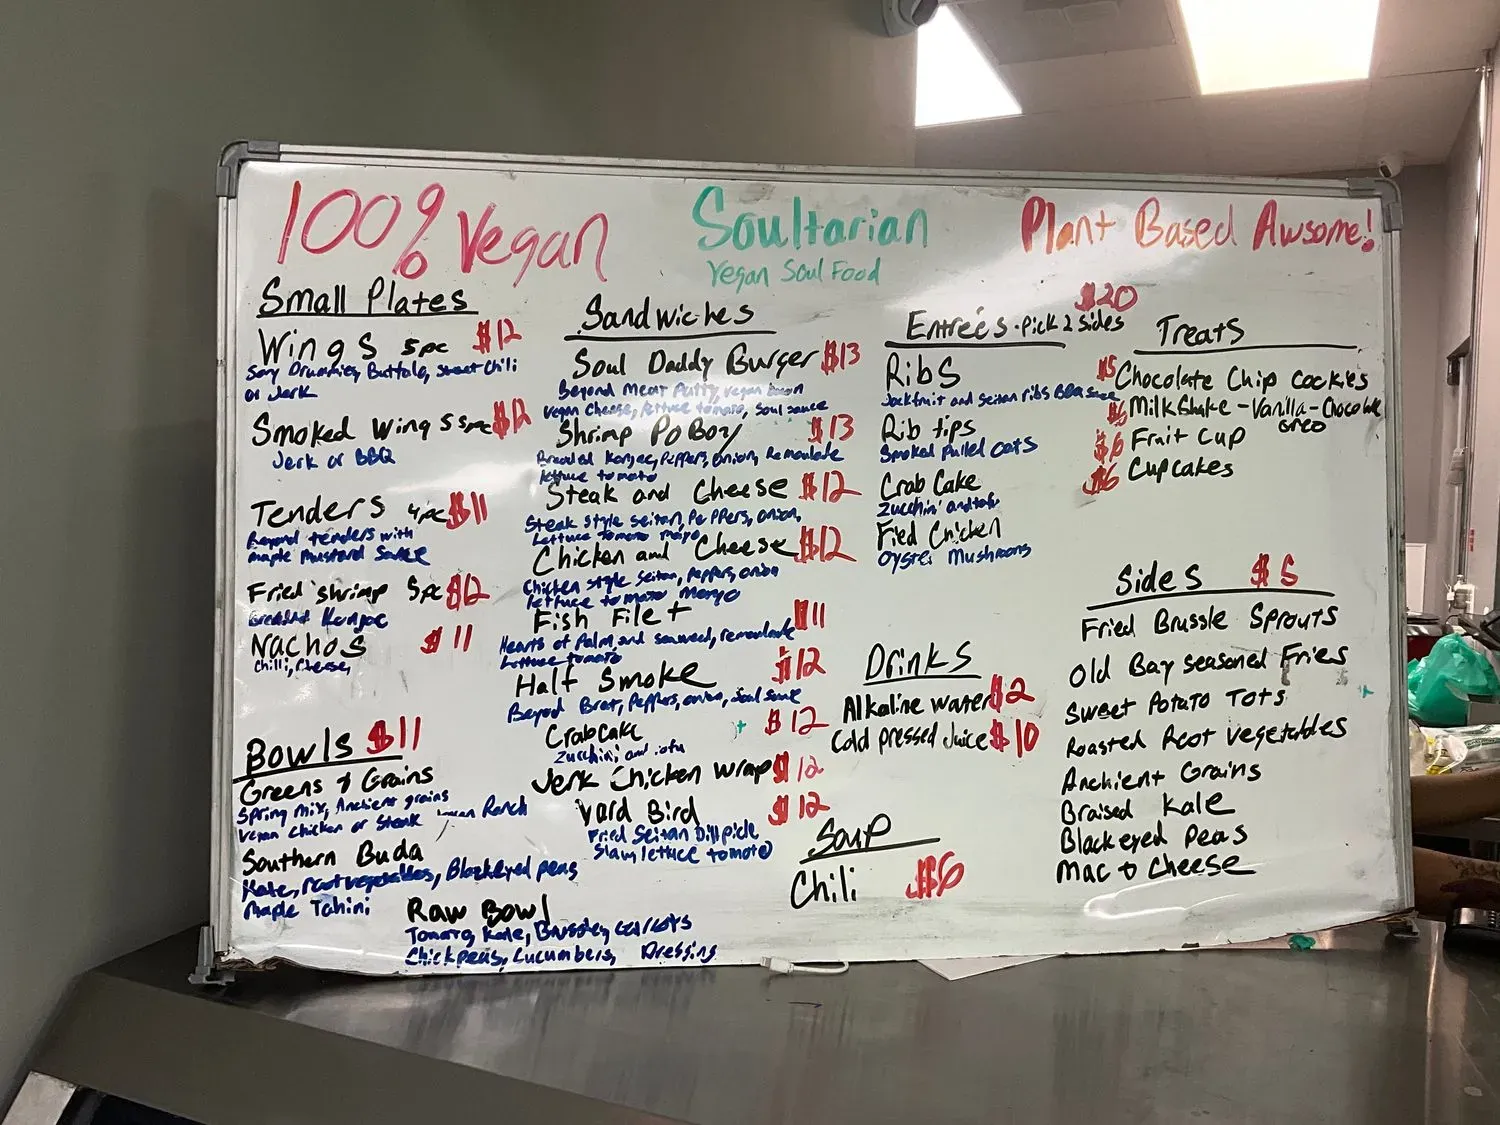 100% Vegan
Soultarian
Vegan Soul Food
Plant Based Awsome!
Small Plates
Wings 5pc $12
Soy Drummies, Buffalo, sweet Chili
or Jerk
Smoked Wings 5pc $12
Jerk or BBQ
Tenders 4pc $11
Beyond tenders with
maple Mustard Sauce
Fried shrimp 5pc $12
Konjac
Nachos $11
Chili, Cheese,
Bowls $11
Greens & Grains
Spring mix, Ancient grains
vegan chicken or Steak vegan Ranch
Southern Buda
Kale, root vegetables, Blackeyed peas
Maple Tahini
Raw Bowl
Tomato, Kale, Brussles, carrots
Chickpeas, Cucumbers, Dressing
Sandwiches
Soul Daddy Burger $13
Beyond Meat Patty, vegan bacon
vegan Cheese, lettuce tomato, Soul sauce
Shrimp PoBoy $13
Breaded Konjac, Peppers, onion, Remoulade
lettuce tomato
Steak and Cheese $12
Steak Style Seitan, Peppers, onion,
Lettuce tomato mayo
Chicken and Cheese $12
Chicken style Seitan, Peppers, onion
lettuce tomato mayo
Fish Filet $11
Hearts of Palm, and seaweed, remoulade
Lettuce tomato
Half Smoke $12
Beyond Brat, Peppers, onion, Soul sauce
Crabcake $12
Zucchini and tofu
Jerk Chicken Wrap $12
Yard Bird $12
Fried Seitan Dill pickle
Slaw lettuce tomato
$20
Entrées - Pick 2 sides
Ribs
Jackfruit and Seitan ribs BBQ sauce
Rib tips
Smoked Pulled oats
Crab Cake
Zucchin' and tofu
Fried Chicken
Oyster Mushrooms
Drinks
Alkaline water $2
Cold pressed Juice $10
Soup
Chili $6
Treats
$5 Chocolate Chip cookies
$6 Milkshake - Vanilla - Chocolate
oreo
$6 Fruit Cup
$6 Cupcakes
Sides $5
Fried Brussle Sprouts
Old Bay seasoned Fries
Sweet Potato Tots
Roasted Root vegetables
Anchient Grains
Braised Kale
Blackeyed Peas
Mac & Cheese